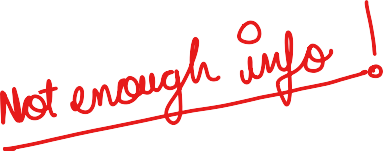 Not enough info!